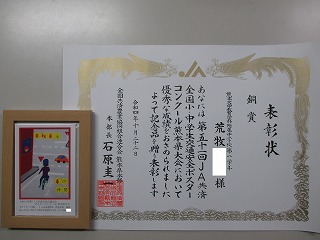 表彰状
銅賞
荒牧
様
あなたは第五十一回JA共済
全国小・中学生交通安全ポスター
コンクール熊本県大会において
優秀な成績をおさめられました
よって記念品を贈り表彰します
令和四年十月二十二日
全国共済農業協同組合連合会 熊本県本部
本部長 石原圭一